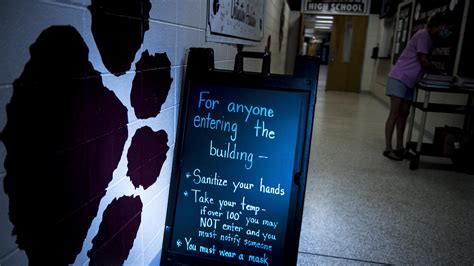 HIGH SCHOOL
For anyone
entering the
building -
* Sanitize your hands
* Take your temp-
if over 100° you may
NOT enter and you
must notify someone
* You must wear a mask